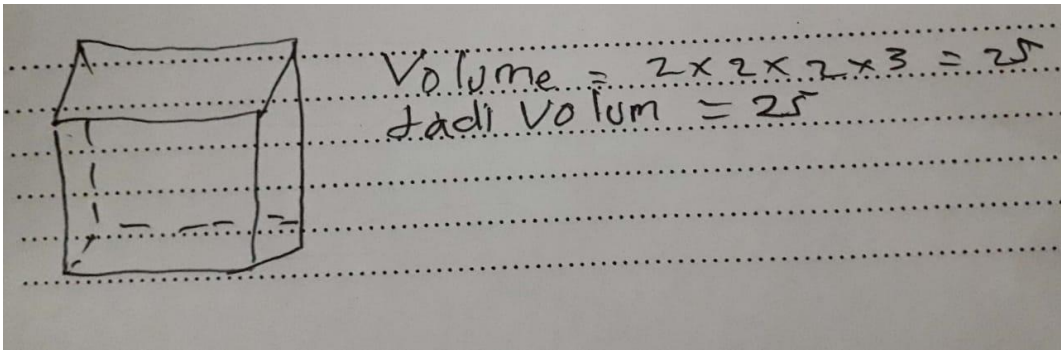 Volume = 2 x 2 x 2 x 3 = 25
Jadi Volum = 25